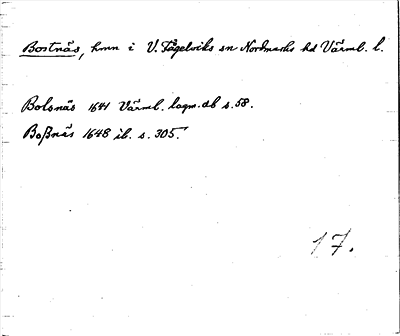 Bostnäs, hmn i V. Fågelviks sn Nordmarks hd Värml. l.
Bolsnäs 1641 Värml. lagm.db s. 58.
Boßnäs 1648 ib. s. 305.
17.